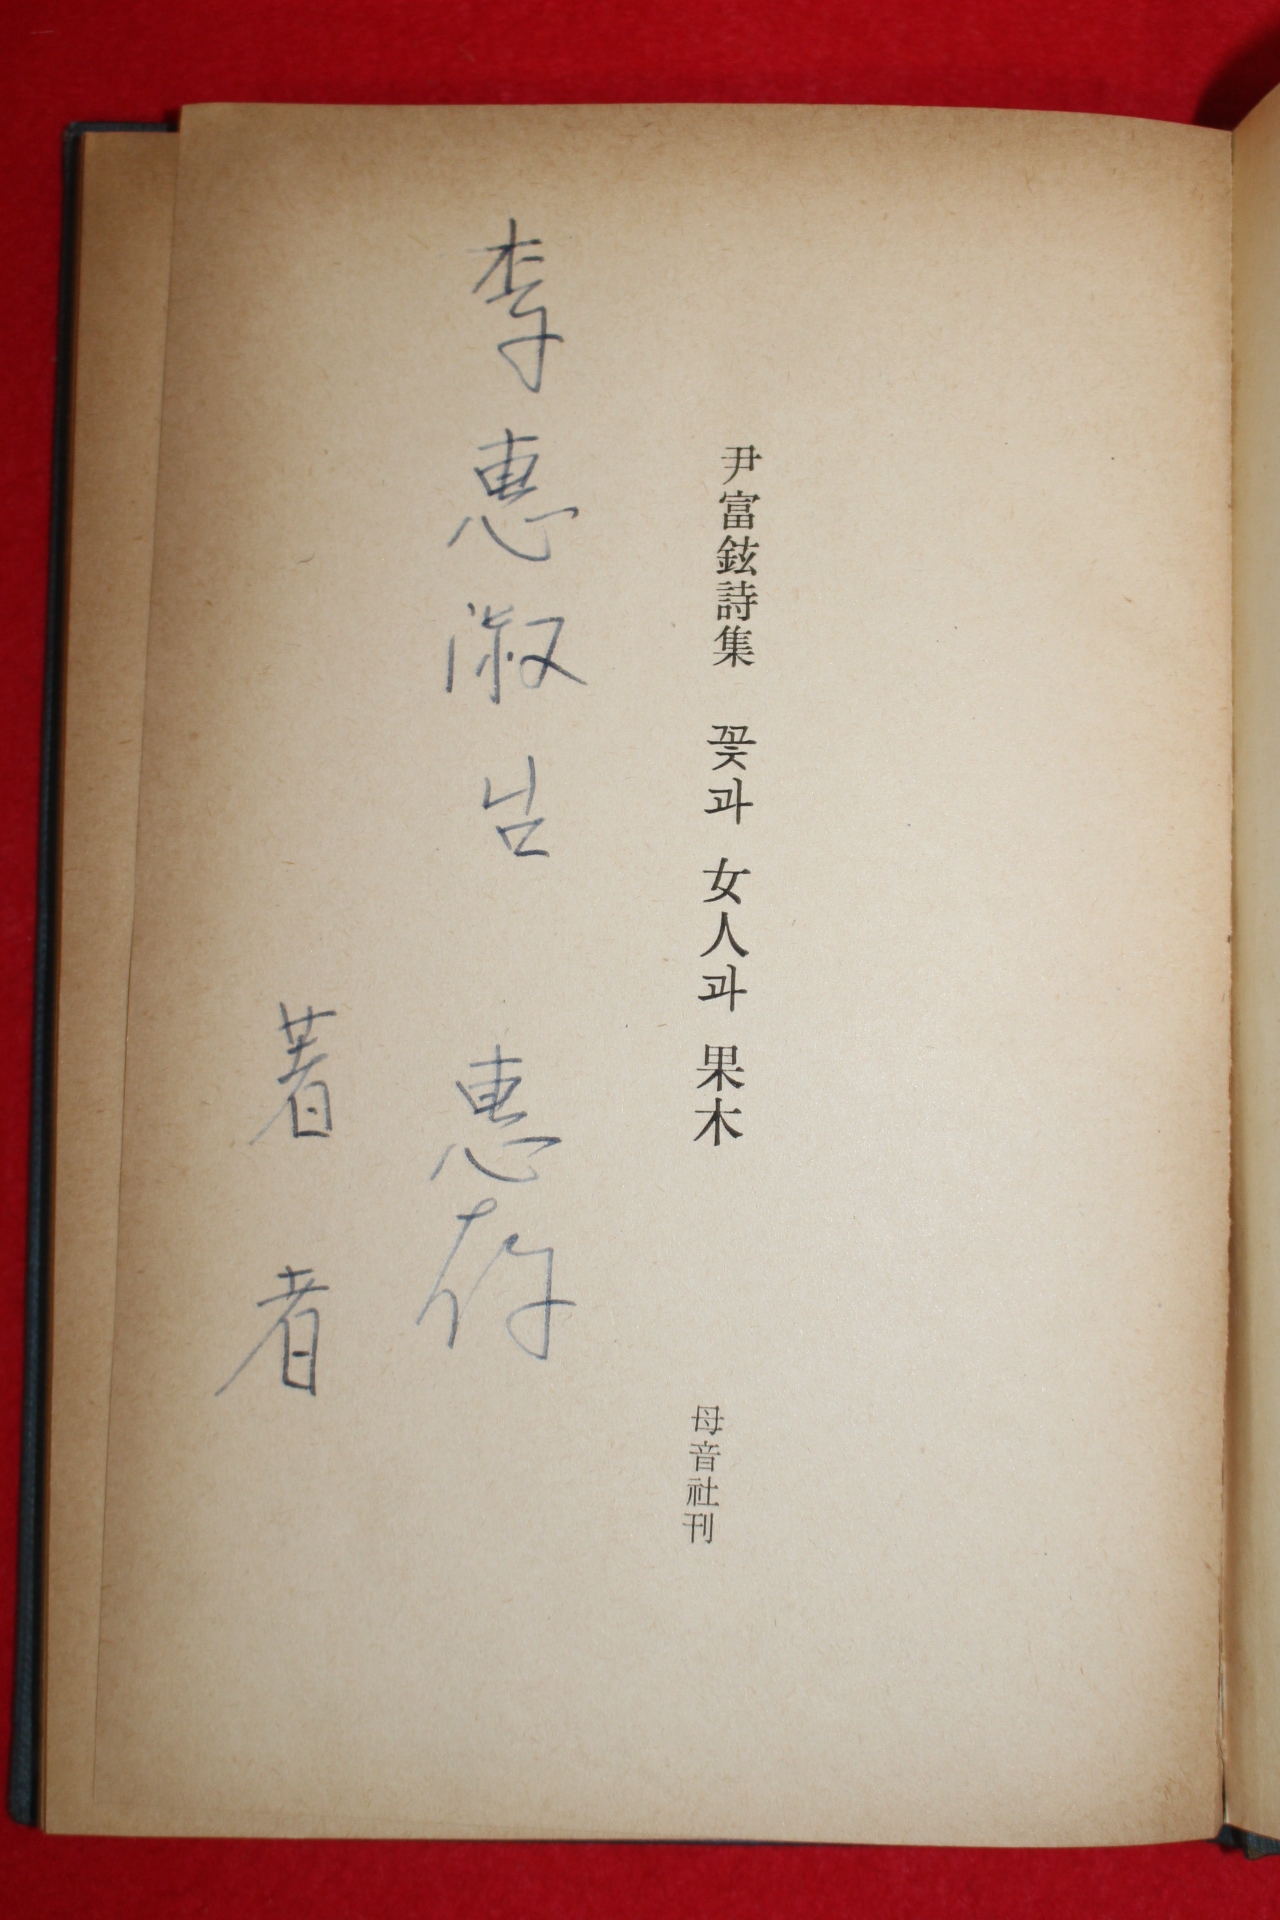 尹富鉉詩集 꽃과 女人과 果木
母音社刊
李惠淑님 惠存
著者